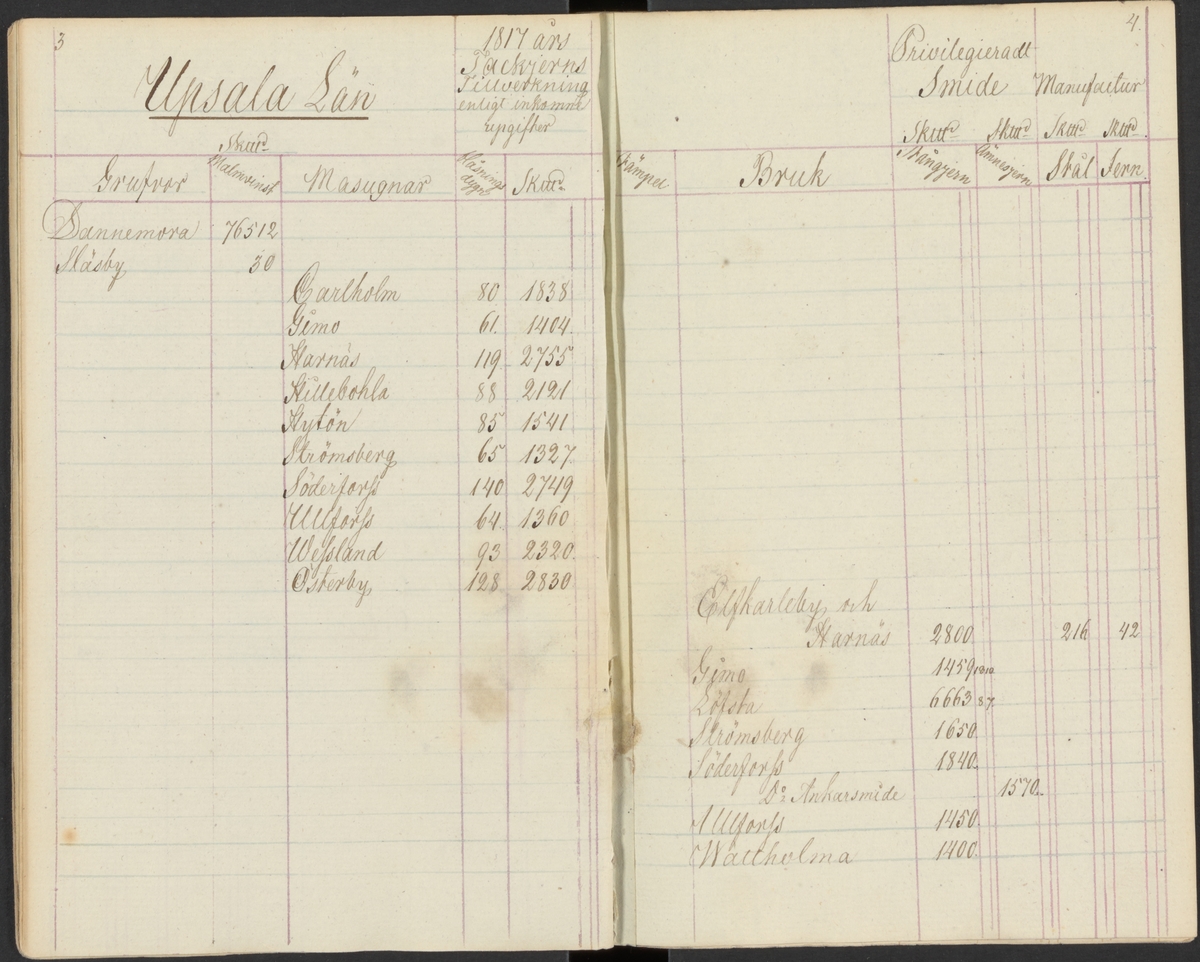 3
Upsala Län
1817 års
Tackjerns
Tillverkning
enligt inkomne
uppgifter
Skttd
Grufvor Malmvinst Masugnar Blåsnings dygn Skttd
Dannemora 76512
Släsby 30
Carlholm 80 1838
Gimo 61. 1404.
Harnäs 119 2755
Hillebohla 88 2121
Hytön 85 1541
Strömsberg 65 1327.
Söderforss 140 2749
Ullforss 64. 1360
Wessland 93 2320.
Österby 128 2830
4.
Privilegieradt
Smide Manufactur
Skttd Skttd Skttd Skttd
Stämpel Bruk Stångjern Ämnesjern Stål Jern
Elfkarleby och
Harnäs 2800. 216 42
Gimo 1459
Löfsta 6663 87.
Strömsberg 1650.
Söderforss 1840.
Do Ankarsmide 1570.
Ullforss 1450.
Wattholma 1400.